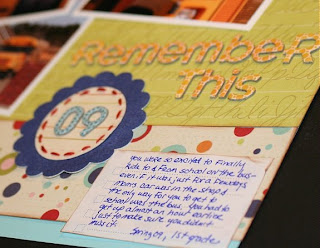 Remember
This
09
You were so excited to finally
ride to & from school on the bus-
even if it was just for a few days
Moms car was in the shop &
the only way for you to get to
school was the bus. You had to
get up almost an hour earlier
just to make sure you didn't
miss it.
Spring 09, 1st grade